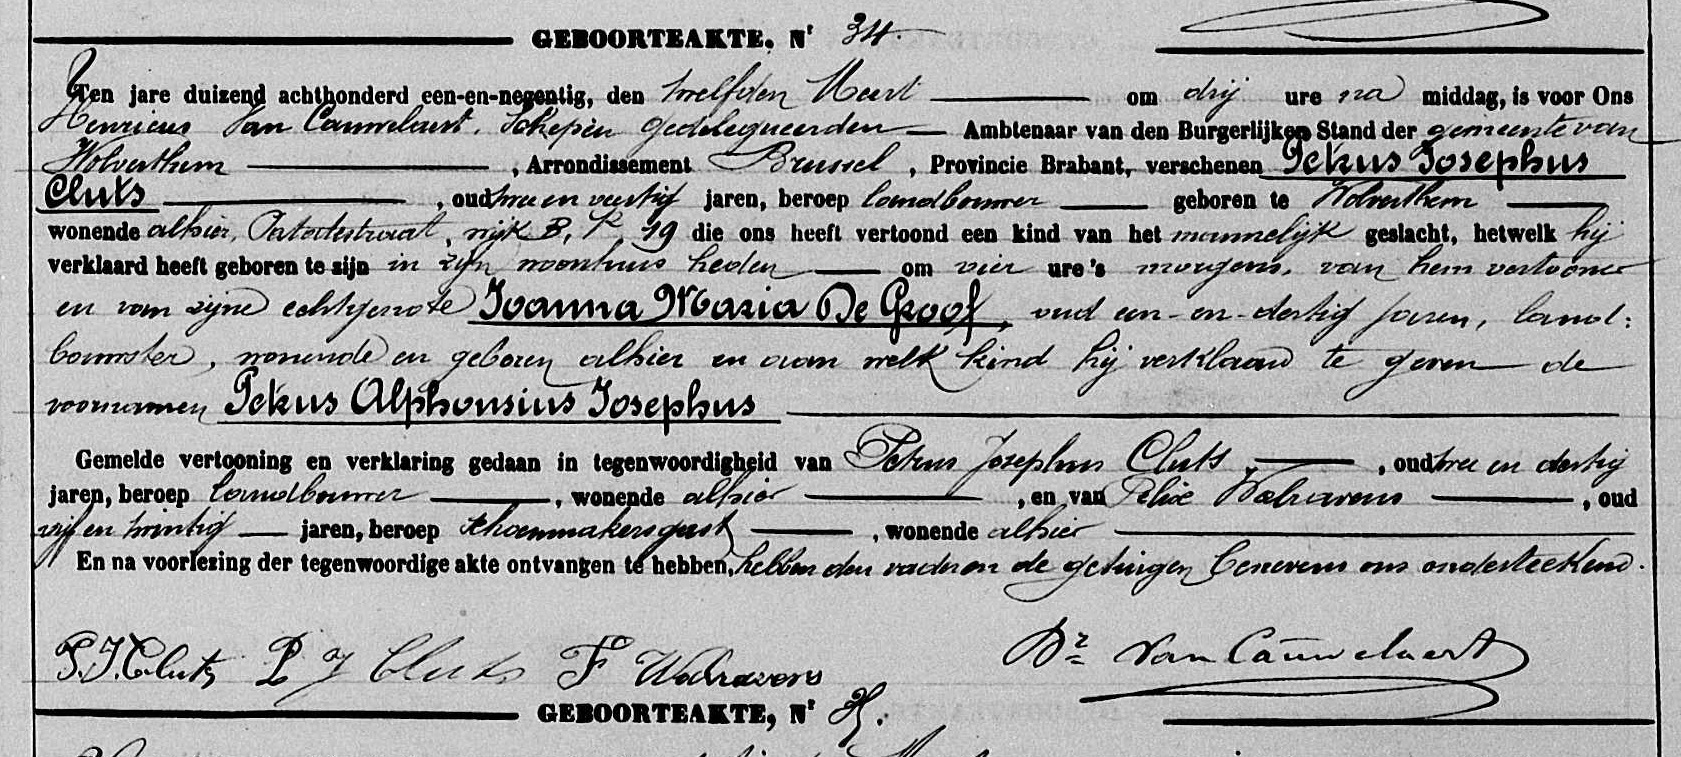 GEBOORTEAKTE, Nr 34.
Ten jare duizend achthonderd een-en-negentig, den twelfden Meert om drij ure na middag, is voor Ons
Henricus Van Cauwelaert, Schepen gedelegueerden Ambtenaar van den Burgerlijken Stand der gemeente van
Wolverthem, Arrondissement Brussel, Provincie Brabant, verschenen Petrus Josephus
Cluts, oud twee en veertig jaren, beroep landbouwer geboren te Wolverthem
wonende alhier, Patodestraat, wijk B, Nr 19 die ons heeft vertoond een kind van het mannelijk geslacht, hetwelk hij
verklaard heeft geboren te zijn in zijn woonhuis heden om vier ure's morgens, van hem vertooner
en van zijne echtgenote Joanna Maria De Groof, oud een-en-dertig jaren, land:
bouwster, wonende en geboren alhier en aan welk kind hij verklaard te geven de
voornamen Petrus Alphonsius Josephus
Gemelde vertooning en verklaring gedaan in tegenwoordigheid van Petrus Josephus Cluts, oud twee en dertig
jaren, beroep landbouwer, wonende alhier, en van Felix Walravens, oud
vijf en twintig jaren, beroep schoenmakersgast, wonende alhier
En na voorlezing der tegenwoordige akte ontvangen te hebben, hebben den vader en de getuigen benevens ons onderteekend.
P. J. Cluts P J Cluts F Walravens Dr Van Cauwelaert
GEBOORTEAKTE, Nr 35.